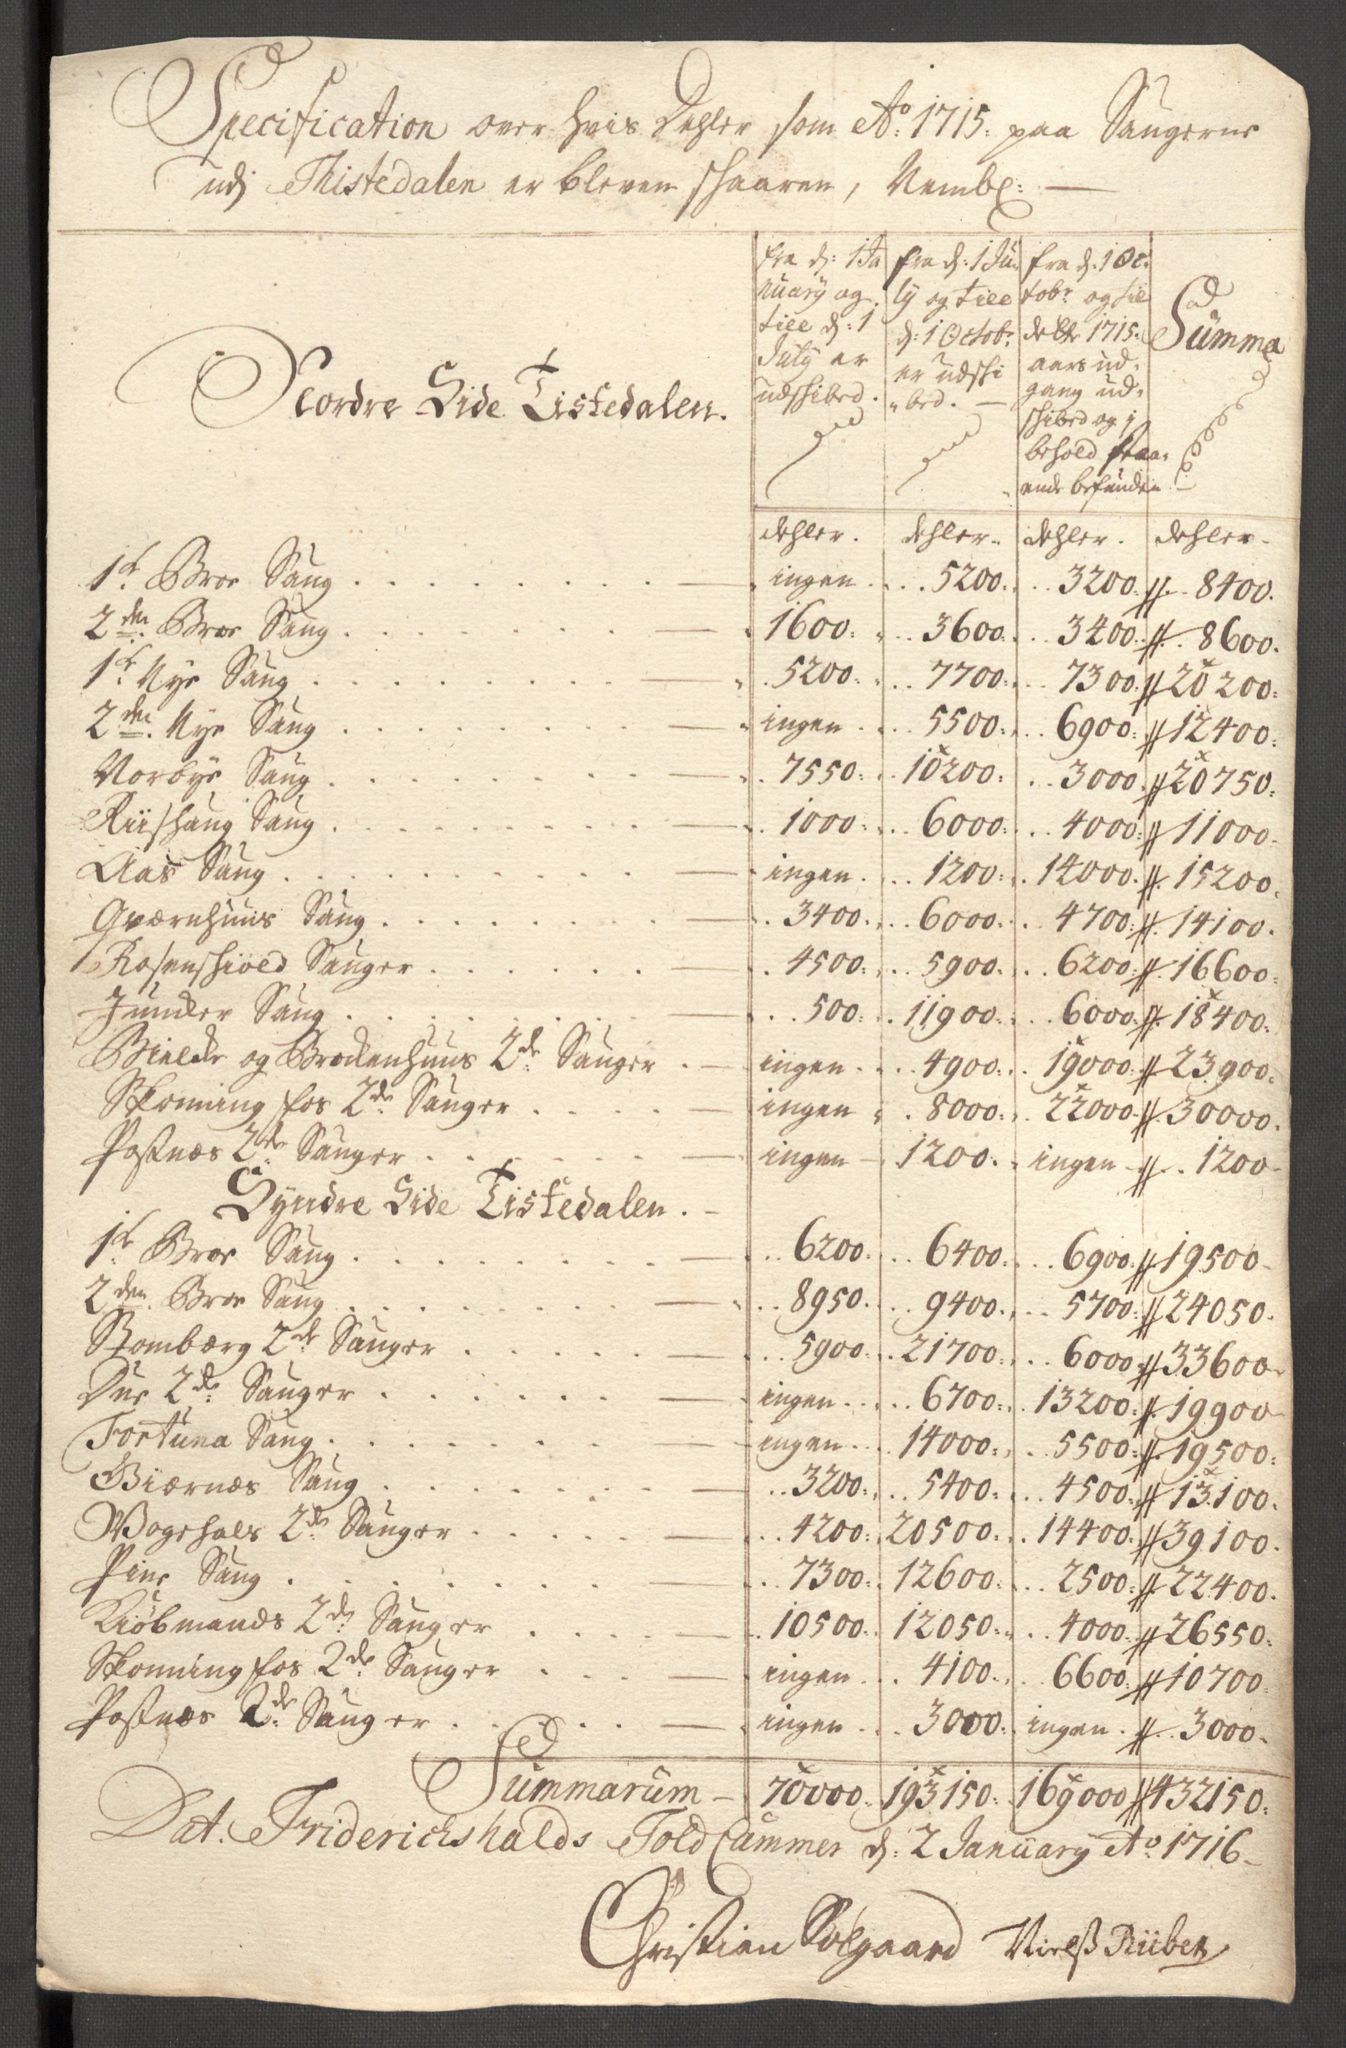 Specification over hvis Dehler som Ao: 1715: paa Saugerne
udj Thistedalen er bleven skaaren, Nembl: —
Nordre Side Tistedalen.
fra d: 1 Ja
nuary og
till d: 1
July er
udskibed.
fra d: 1 Ju-
ly og till
d: 1 Octobr:
er udski
bed. —
fra d. 1 Oc-
tobr: og till
dette 1715:
aars ud-
gang ud-
skibed og j
behold staa-
ende befunden
Summa
dehler. dehler. dehler. dehler.
1st Broe Saug ingen 5200. 3200. 8400.
2den Broe Saug 1600. 3600. 3400. 8600.
1st Nye Saug 5200. 7700. 7300. 20200.
2den Nye Saug ingen 5500. 6900. 12400.
Norbye Saug 7550. 10200. 3000. 20750.
Riishaug Saug 1000. 6000. 4000. 11000.
Aas Saug ingen 1200. 14000. 15200.
Qværnhuus Saug 3400. 6000. 4700. 14100.
Rosenschiold Sauger 4500. 5900. 6200. 16600.
Juncker Saug 500. 11900. 6000. 18400.
Bielcke og Brockenhuus 2de Sauger ingen 4900. 19000. 23900.
Skonning fos 2de Sauger ingen 8000. 22000. 30000.
Postnæs 2de Sauger ingen 1200. ingen 1200
Syndre Side Tistedalen.
1st Broe Saug 6200. 6400. 6900. 19500
2den Broe Saug 8950. 9400. 5700. 24050.
Stombærg 2de Sauger 5900. 21700. 6000. 33600
Due 2de Sauger ingen 6700. 13200. 19900
Fortuna Saug ingen 14000. 5500. 19500.
Biørnæs Saug 3200. 5400. 4500. 13100.
Wogehals 2de Sauger 4200. 20500. 14400. 39100.
Pine Saug 7300. 12600. 2500. 22400.
Kiøbmands 2de Sauger 10500. 12050. 4000. 26550.
Skonning fos 2de Sauger ingen 4100. 6600. 10700.
Postnæs 2de Sauger ingen 3000. ingen 3000.
Summarum — 70000. 193150. 169000 432150.
Dat. Friderichshalds Told Cammer d: 2 January Ao 1716
Christian Solgaard Rüber